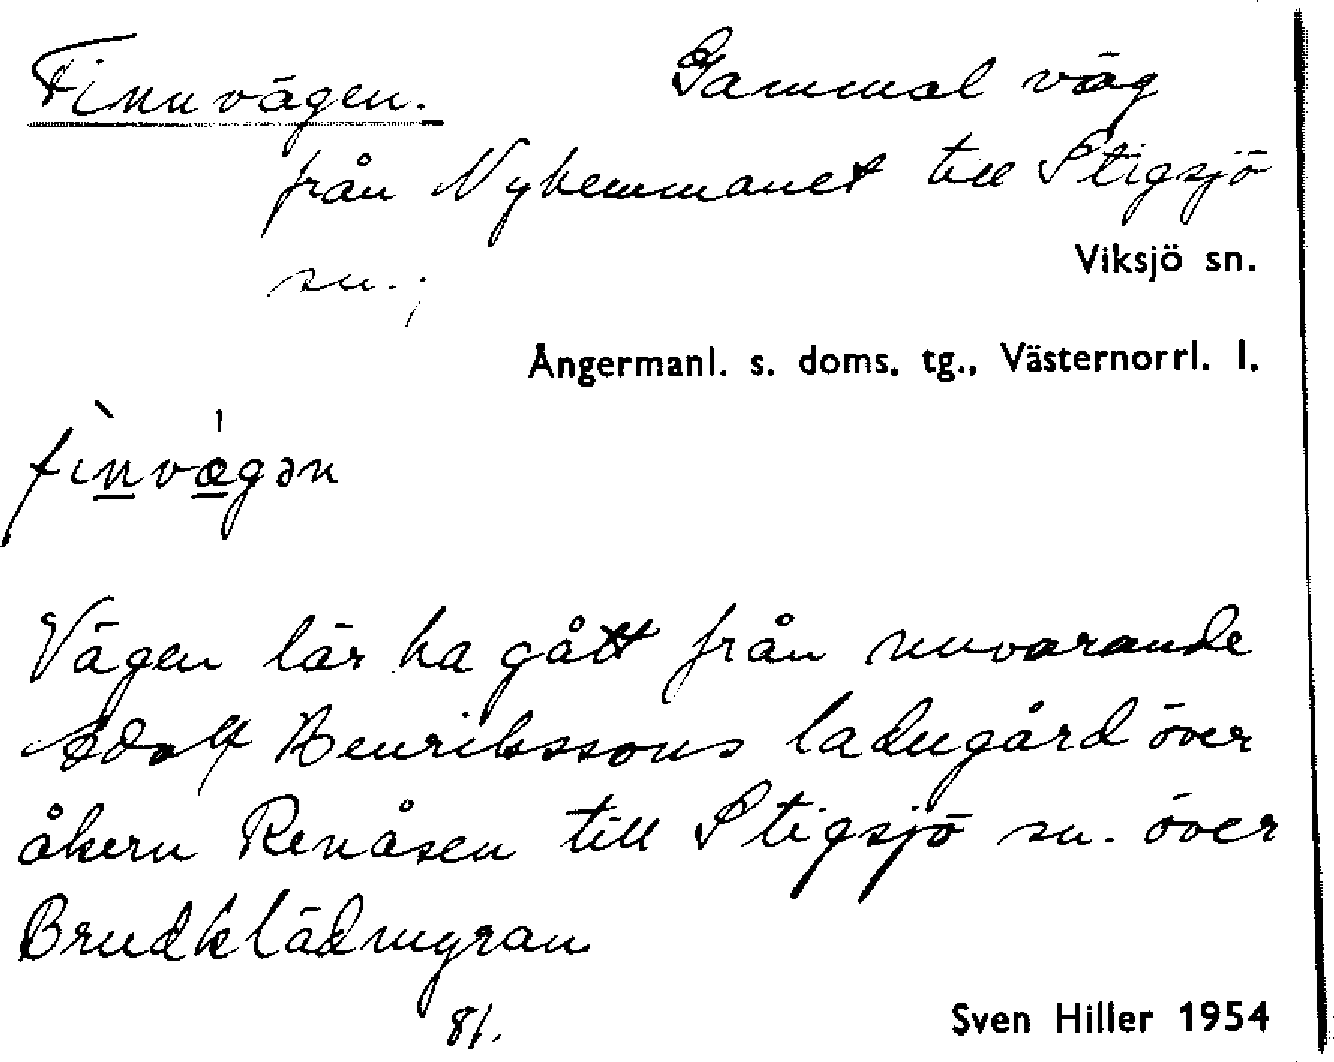 Finnvägen. Gammal väg
från Nyhemmanet till Stigsjö
sn.;
Viksjö sn.
Ångermanl. s. doms. tg., Västernorrl. l.
fìnvæ̍gən
Vägen lär ha gått från nuvarande
Adolf Henrikssons ladugård över
åkern Renåsen till Stigsjö sn. över
Brudklädmyran
81.
Sven Hiller 1954